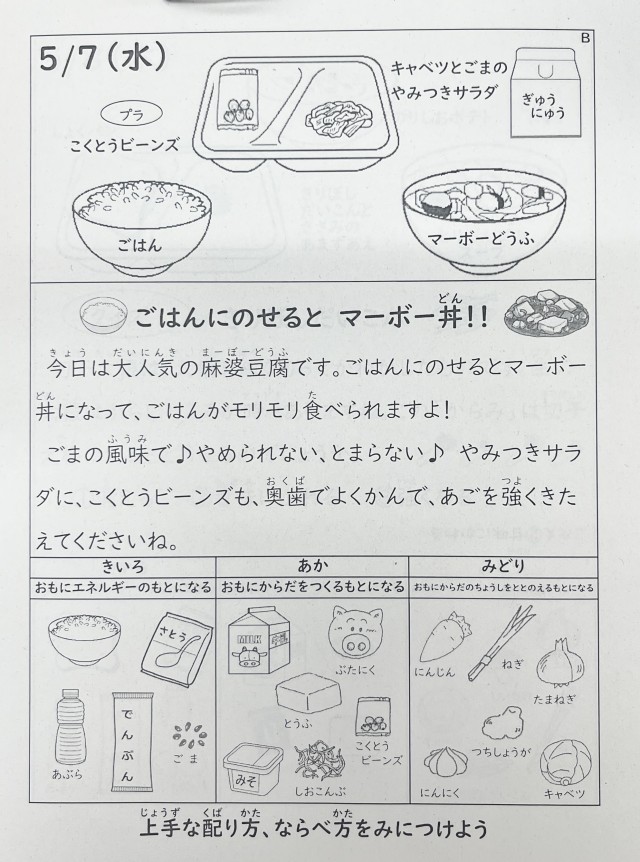 B
5/7(水)
キャベツとごまの
やみつきサラダ
ぎゅう
にゅう
プラ
こくとうビーンズ
ごはん
マーボーどうふ
ごはんにのせると マーボー丼!!
どん
きょう だいにんき まーぼーどうふ
今日は大人気の麻婆豆腐です。ごはんにのせるとマーボー
どん た
丼になって、ごはんがモリモリ食べられますよ!
ふうみ
ごまの風味で♪やめられない、とまらない♪ やみつきサラ
おくば つよ
ダに、こくとうビーンズも、奥歯でよくかんで、あごを強くきた
えてくださいね。
きいろ
おもにエネルギーのもとになる
さとう
あぶら
でんぷん
ごま
あか
おもにからだをつくるもとになる
MILK
牛乳
ぶたにく
とうふ
こくとう
ビーンズ
みそ
しおこんぶ
みどり
おもにからだのちょうしをととのえるもとになる
にんじん
ねぎ
たまねぎ
つちしょうが
にんにく
キャベツ
じょうず くば かた かた
上手な配り方、ならべ方をみにつけよう